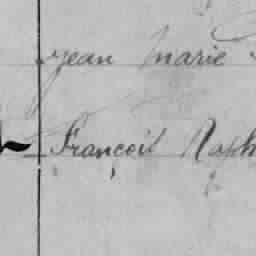 Jean Marie
François Raph